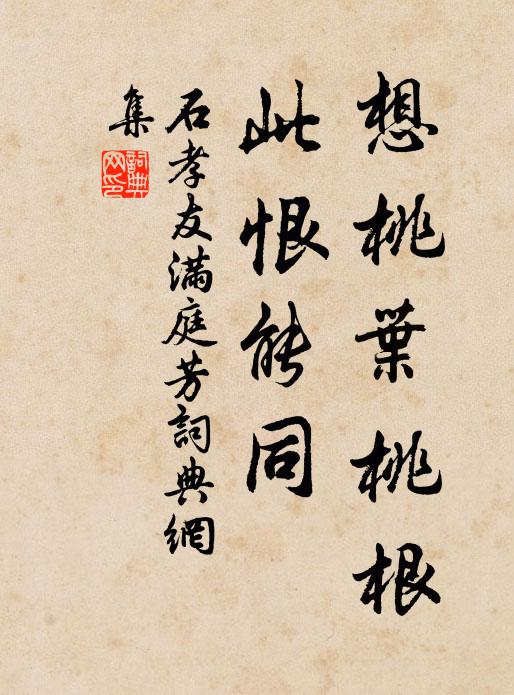 想桃葉桃根
此恨能同
石孝友滿庭芳詞典網
集
詞典
网印